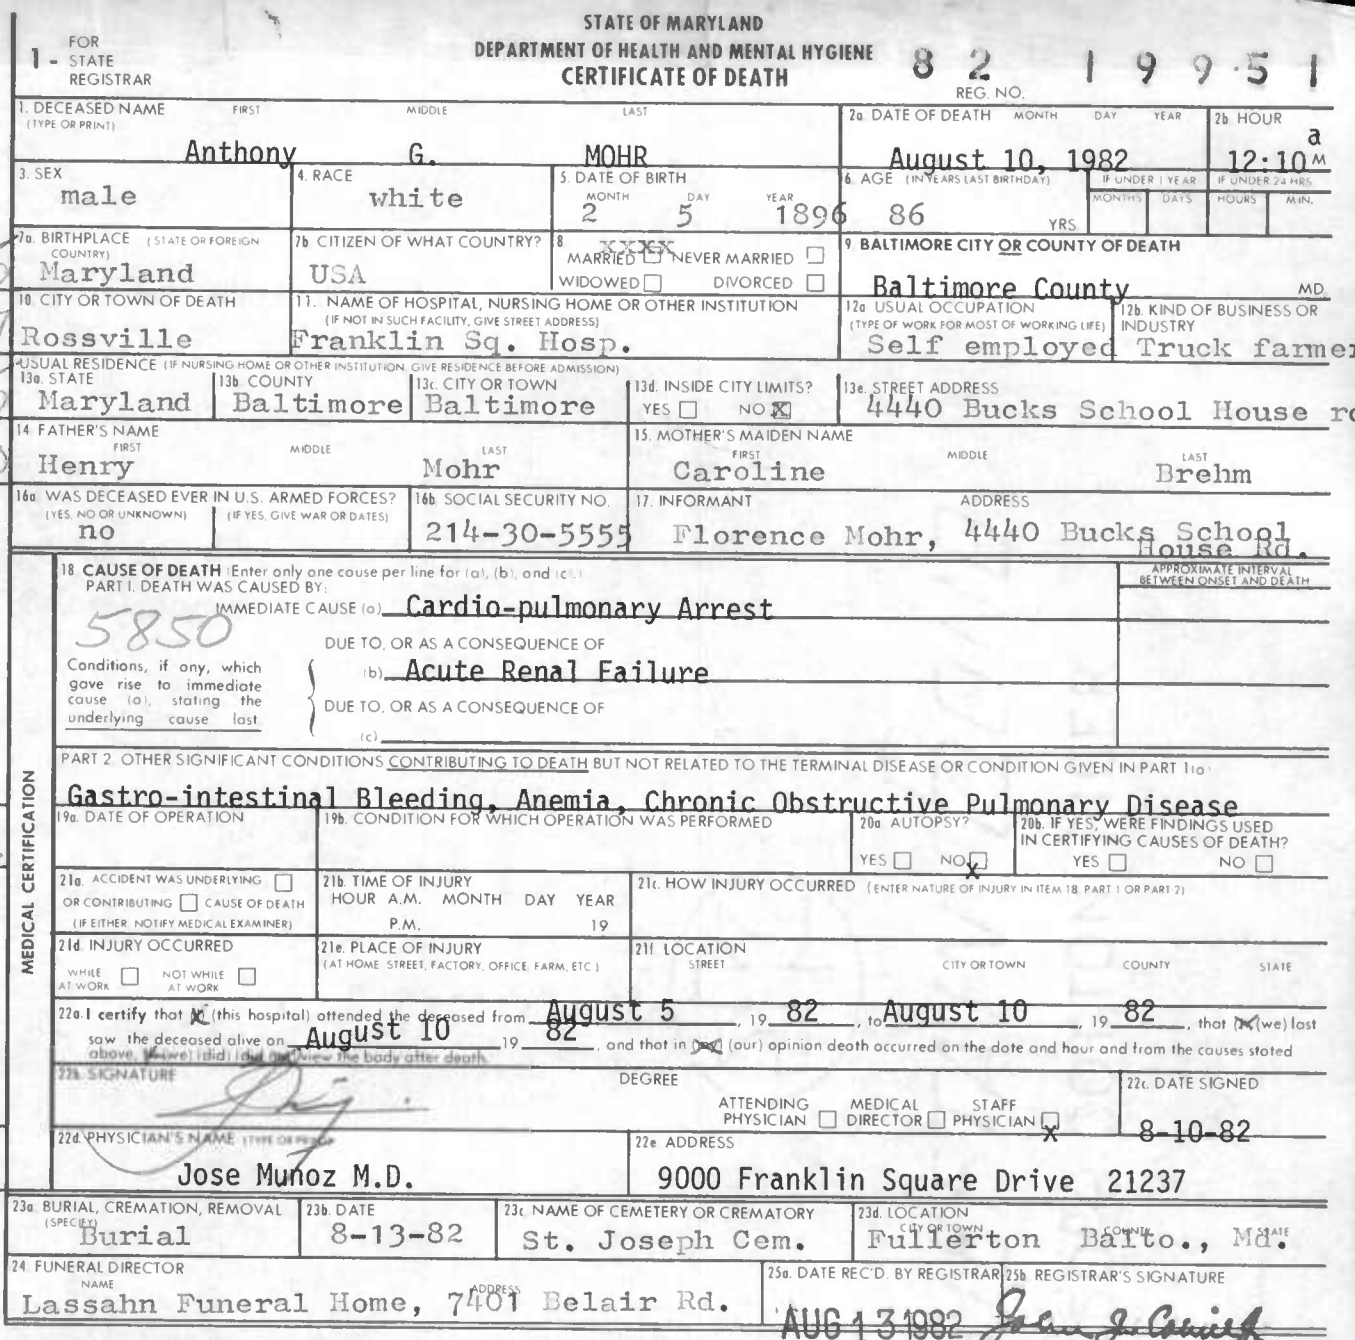 STATE OF MARYLAND
DEPARTMENT OF HEALTH AND MENTAL HYGIENE
CERTIFICATE OF DEATH
1 - FOR STATE REGISTRAR
82 19951
REG. NO.
1. DECEASED NAME FIRST MIDDLE LAST
(TYPE OR PRINT)
Anthony G. MOHR
2a. DATE OF DEATH MONTH DAY YEAR
August 10, 1982
2b. HOUR
12:10 a M
3. SEX
male
4. RACE
white
5. DATE OF BIRTH
MONTH DAY YEAR
2 5 1896
6. AGE (IN YEARS LAST BIRTHDAY)
86 YRS.
IF UNDER 1 YEAR
MONTHS DAYS
IF UNDER 24 HRS
HOURS MIN.
7a. BIRTHPLACE (STATE OR FOREIGN COUNTRY)
Maryland
7b. CITIZEN OF WHAT COUNTRY?
USA
8
XXXX
MARRIED NEVER MARRIED
WIDOWED DIVORCED
9. BALTIMORE CITY OR COUNTY OF DEATH
Baltimore County MD.
10. CITY OR TOWN OF DEATH
Rossville
11. NAME OF HOSPITAL, NURSING HOME OR OTHER INSTITUTION
(IF NOT IN SUCH FACILITY, GIVE STREET ADDRESS)
Franklin Sq. Hosp.
12a. USUAL OCCUPATION
(TYPE OF WORK FOR MOST OF WORKING LIFE)
Self employed
12b. KIND OF BUSINESS OR INDUSTRY
Truck farmer
USUAL RESIDENCE (IF NURSING HOME OR OTHER INSTITUTION, GIVE RESIDENCE BEFORE ADMISSION)
13a. STATE
Maryland
13b. COUNTY
Baltimore
13c. CITY OR TOWN
Baltimore
13d. INSIDE CITY LIMITS?
YES NO X
13e. STREET ADDRESS
4440 Bucks School House rd
14. FATHER'S NAME
FIRST MIDDLE LAST
Henry Mohr
15. MOTHER'S MAIDEN NAME
FIRST MIDDLE LAST
Caroline Brehm
16a. WAS DECEASED EVER IN U.S. ARMED FORCES?
(YES, NO OR UNKNOWN) (IF YES, GIVE WAR OR DATES)
no
16b. SOCIAL SECURITY NO.
214-30-5555
17. INFORMANT ADDRESS
Florence Mohr, 4440 Bucks School
House Rd.
MEDICAL CERTIFICATION
18. CAUSE OF DEATH (Enter only one cause per line for (a), (b), and (c).)
PART I. DEATH WAS CAUSED BY:
APPROXIMATE INTERVAL
BETWEEN ONSET AND DEATH
IMMEDIATE CAUSE (a) Cardio-pulmonary Arrest
5850
DUE TO, OR AS A CONSEQUENCE OF
Conditions, if any, which
gave rise to immediate
cause (a), stating the
underlying cause last
(b) Acute Renal Failure
DUE TO, OR AS A CONSEQUENCE OF
(c)
PART 2. OTHER SIGNIFICANT CONDITIONS CONTRIBUTING TO DEATH BUT NOT RELATED TO THE TERMINAL DISEASE OR CONDITION GIVEN IN PART 1(a)
Gastro-intestinal Bleeding, Anemia, Chronic Obstructive Pulmonary Disease
19a. DATE OF OPERATION
19b. CONDITION FOR WHICH OPERATION WAS PERFORMED
20a. AUTOPSY?
YES NO X
20b. IF YES, WERE FINDINGS USED
IN CERTIFYING CAUSES OF DEATH?
YES NO
21a. ACCIDENT WAS UNDERLYING
OR CONTRIBUTING CAUSE OF DEATH
(IF EITHER, NOTIFY MEDICAL EXAMINER)
21b. TIME OF INJURY
HOUR A.M. MONTH DAY YEAR
P.M. 19
21c. HOW INJURY OCCURRED (ENTER NATURE OF INJURY IN ITEM 18, PART 1 OR PART 2)
21d. INJURY OCCURRED
WHILE AT WORK NOT WHILE AT WORK
21e. PLACE OF INJURY
(AT HOME, STREET, FACTORY, OFFICE, FARM, ETC.)
21f. LOCATION
STREET CITY OR TOWN COUNTY STATE
22a. I certify that (this hospital) attended the deceased from August 5, 19 82, to August 10, 19 82, that (we) last
saw the deceased alive on August 10 19 82, and that in (our) opinion death occurred on the date and hour and from the causes stated
above, (we) (did) (did not) view the body after death.
22b. SIGNATURE
DEGREE
ATTENDING PHYSICIAN MEDICAL DIRECTOR STAFF PHYSICIAN X
22c. DATE SIGNED
8-10-82
22d. PHYSICIAN'S NAME (TYPE OR PRINT)
Jose Muñoz M.D.
22e. ADDRESS
9000 Franklin Square Drive 21237
23a. BURIAL, CREMATION, REMOVAL
(SPECIFY)
Burial
23b. DATE
8-13-82
23c. NAME OF CEMETERY OR CREMATORY
St. Joseph Cem.
23d. LOCATION
CITY OR TOWN COUNTY STATE
Fullerton Balto., Md.
24. FUNERAL DIRECTOR
NAME ADDRESS
Lassahn Funeral Home, 7401 Belair Rd.
25a. DATE REC'D. BY REGISTRAR
AUG 13 1982
25b. REGISTRAR'S SIGNATURE